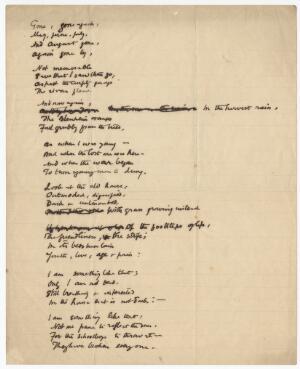 Gone, gone again,
May, June, July,
And August gone,
Again gone by,
Not memorable
Save that I saw them go,
As past the empty quays
The rivers flow.
And now again,
In the harvest rain,
The Blenheim oranges
Fall grubby from the trees,
As when I was young —
And when the lost one was here —
And when the war began
To turn young men to dung.
Look at the old house,
Outmoded, dignified,
Dark & untenanted,
With grass growing instead
Of the footsteps of life,
The friendliness, & the strife;
In its beds have lain
Youth, love, age & pain:
I am something like that;
Only I am not dead,
Still breathing & interested
In the house that is not dark: —
I am something like that:
Not one pane to reflect the sun,
For the schoolboys to throw at —
They have broken every one.